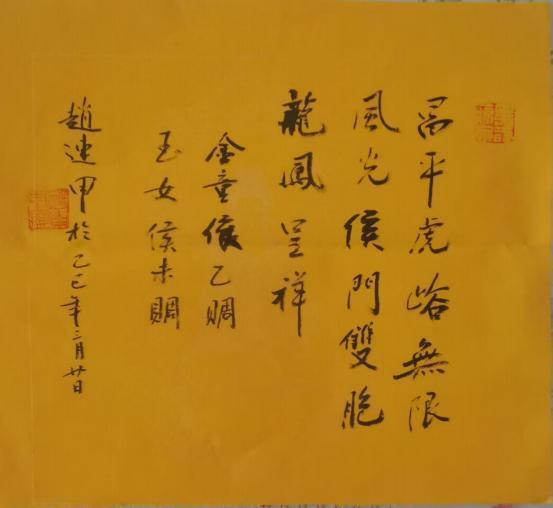 昌平虎峪無限
風光侯門雙胞
龍鳳呈祥
金童侯乙賙
玉女侯未賙
趙連甲於乙巳年三月廿日